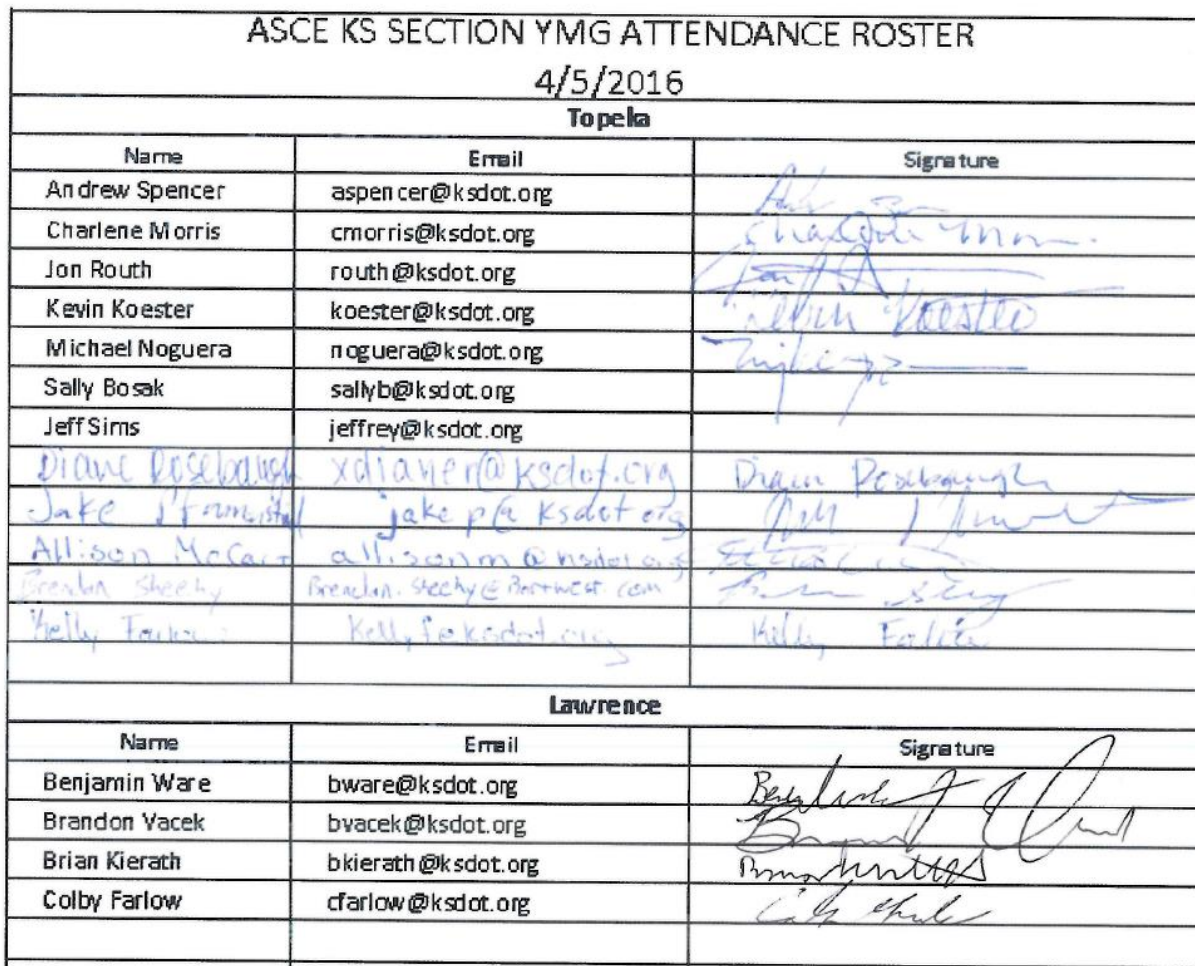 ASCE KS SECTION YMG ATTENDANCE ROSTER
4/5/2016
Topeka
Name Email Signature
Andrew Spencer aspencer@ksdot.org
Charlene Morris cmorris@ksdot.org
Jon Routh routh@ksdot.org
Kevin Koester koester@ksdot.org Kevin Koester
Michael Noguera noguera@ksdot.org
Sally Bosak sallyb@ksdot.org
Jeff Sims jeffrey@ksdot.org
Diane Rosebaugh xdianer@ksdot.org Diane Rosebaugh
Jake jakep@ksdot.org
Allison allisonm@ksdot.org
Brendan Sheehy Brendan.sheehy@Bartwest.com
Kelly kellyf@ksdot.org Kelly
Lawrence
Name Email Signature
Benjamin Ware bware@ksdot.org
Brandon Vacek bvacek@ksdot.org
Brian Kierath bkierath@ksdot.org
Colby Farlow cfarlow@ksdot.org